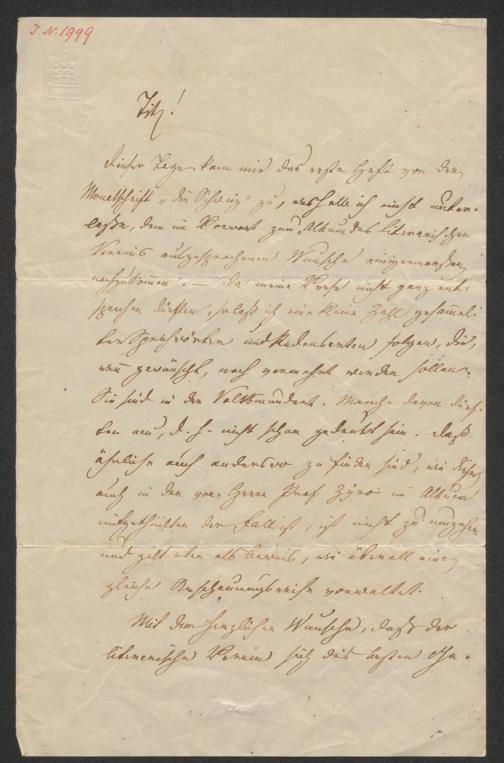 J. N. 1999
Tit!
Dieser Tage kam mir das erste Heft von der
Monatschrift „die Schweiz" zu, weshalb ich nicht unter-
lasse, dem im Vorwort zum Album des literarischen
Vereins ausgesprochenen Wunsche einigermassen
nachzukommen. — Da meine Verse nicht ganz ent-
sprechen dürften, so lass ich eine kleine Zahl gesammel-
ter Sprichwörter und Redensarten folgen, die,
wie gewünscht, noch vermehrt werden sollen.
Sie sind in der Volksmundart. Manche davon dürf-
ten neu, d. h. nicht schon gedruckt sein. Dass
ähnliche auch anderswo zu finden sind, wie dieses
auch in den von Herrn Prof. Zyro im Album
mitgetheilten der Fall ist, ist nicht zu umgehen
und gilt eben als Beweis, wie überall eine
gleiche Anschauungsweise vorwaltet.
Mit dem herzlichen Wunsche, dass der
literarische Verein sich des besten